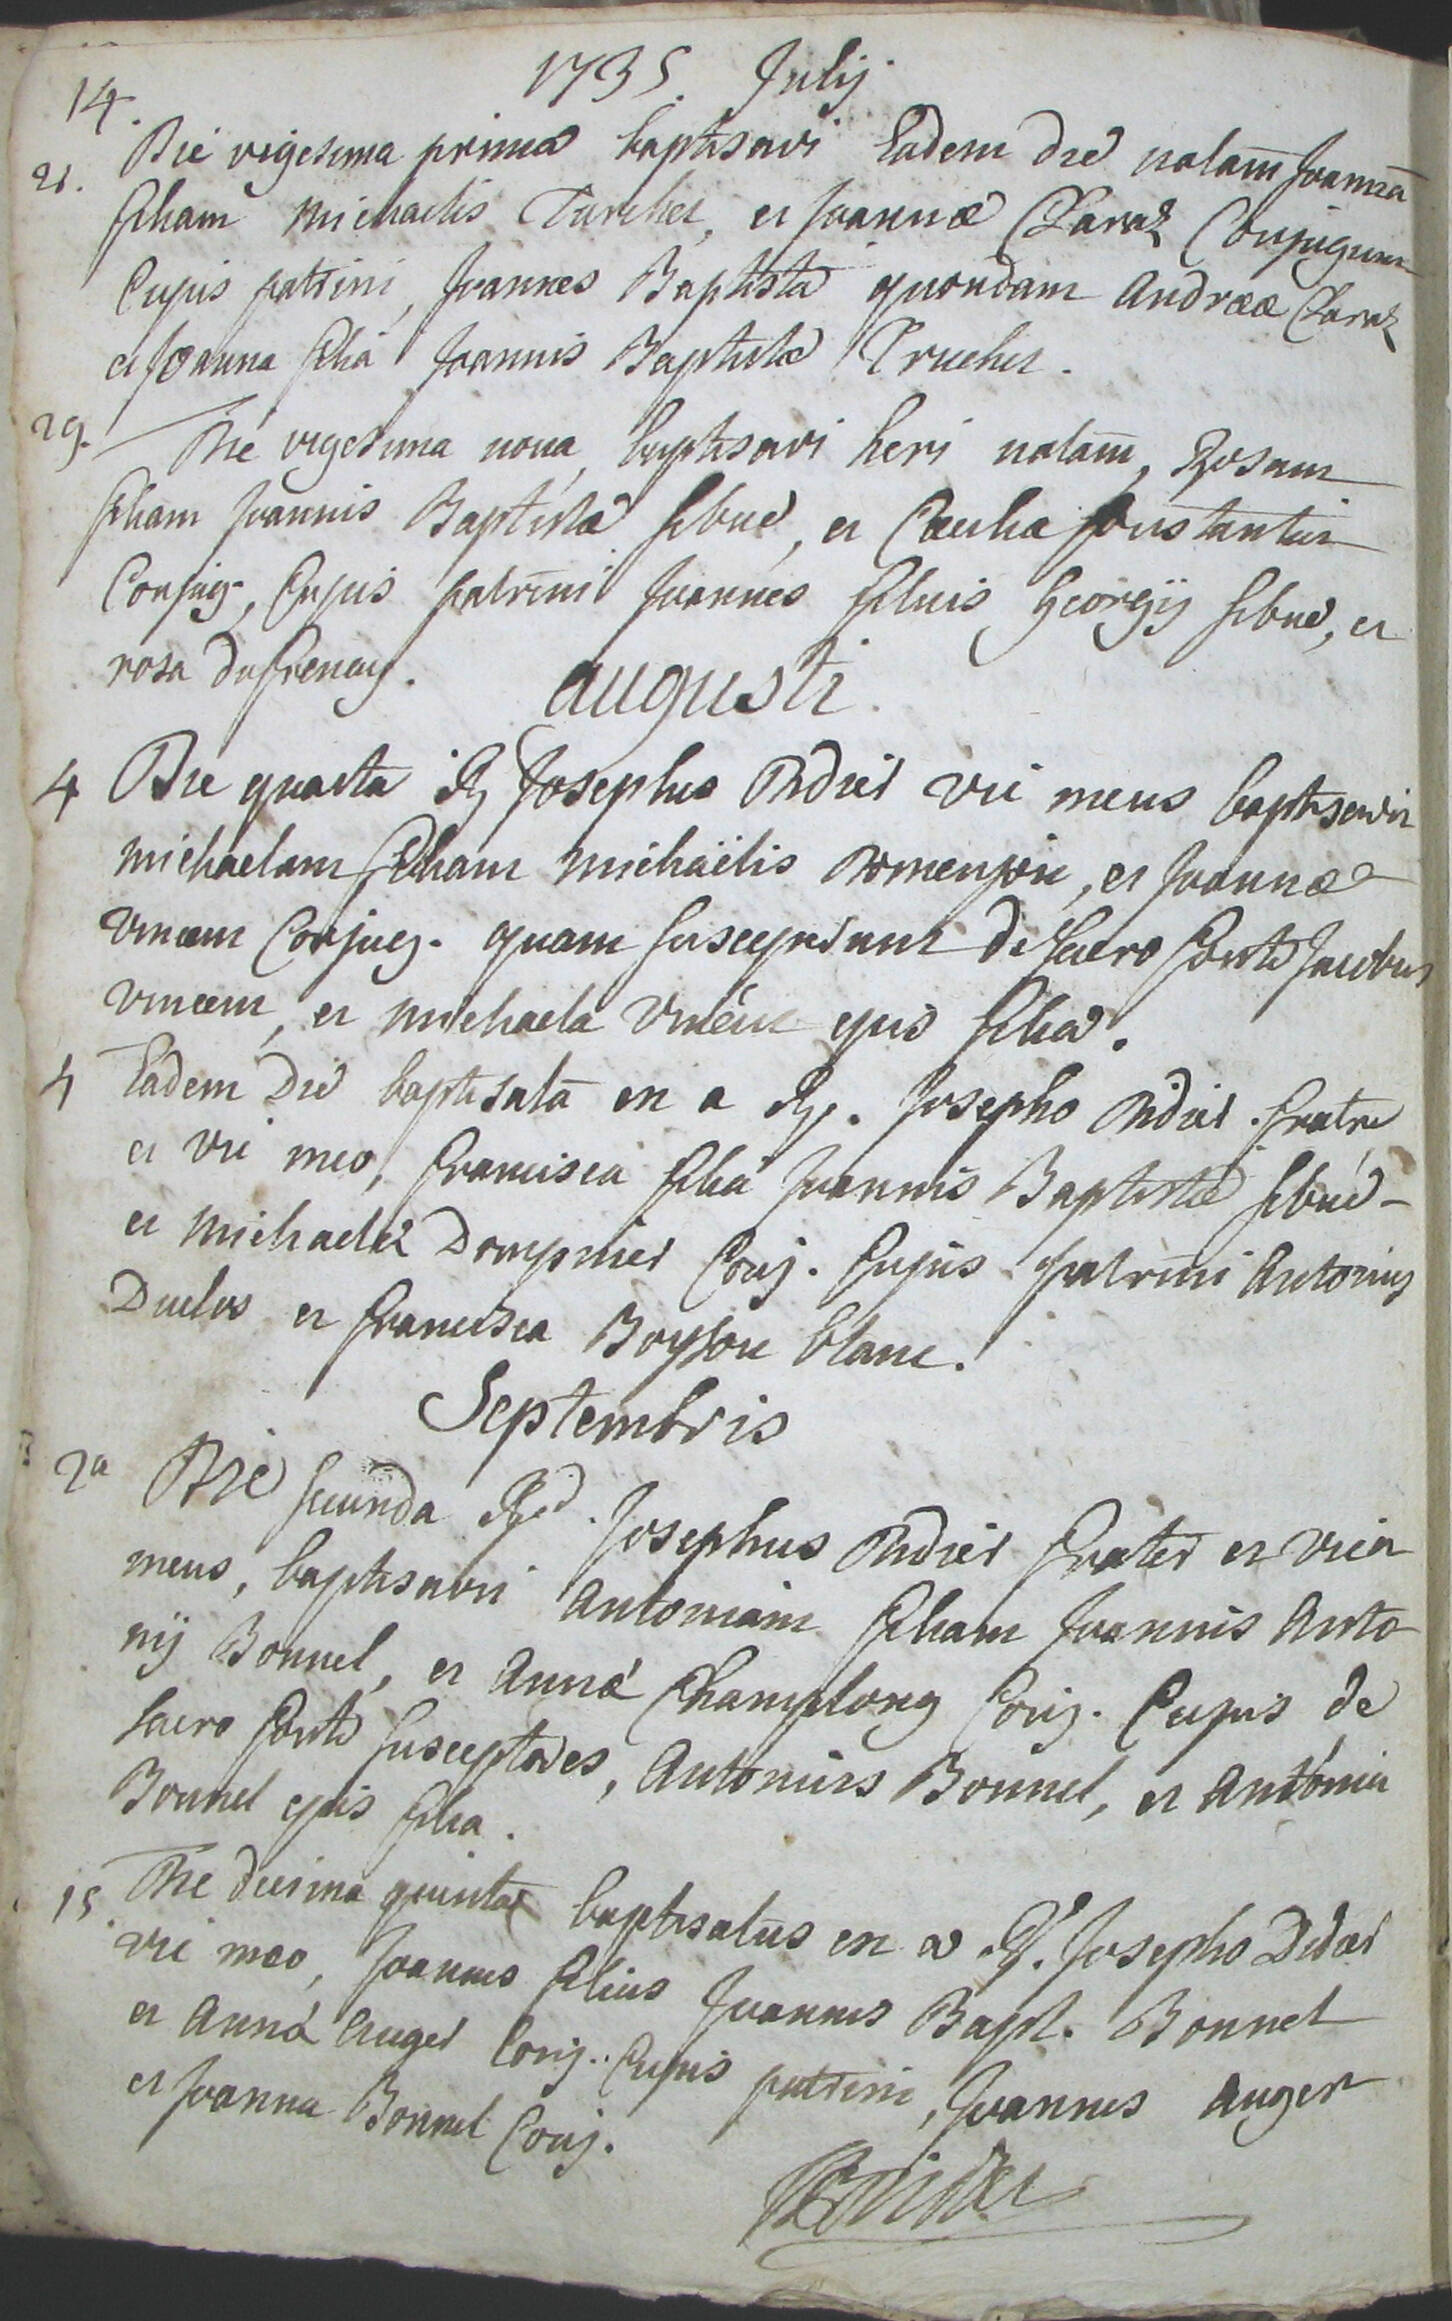 1735. Julij.
14.
21. Die vigesima prima baptisavi Eadem die natam Joannā
filiam Michaelis Turchet, et Joannæ Claraz Conjugum
Cujus patrini, Joannes Baptista quondam Andreæ Claraz
et Joanna filia Joannis Baptistæ Truchet.
29. Die vigesima nona, baptisavi heri natam, Rosam
filiam Joannis Baptistæ Sibué, et Constantin
Conjug., Cujus patrini Joannes filius Georgij Sibué, et
rosa dufrenay.
augusti.
4 Die quarta Rd Josephus Didier vic meus baptisavit
michaelam filiam michaëlis Romenjon, et Joannæ
vincen Conjug. quam susceperunt de Sacro fonte Jacobus
vincen, et michaela vincen ejus filia.
4 Eadem Die baptisata est a Rd. Josepho Didier. fratre
et vic meo, francisca filia Joannis Baptistæ Sibué
et Michaelæ Dompnier Conj. Cujus patrini Antonius
Duclos et francisca Boysson blanc.
Septembris
2a Die secunda Rd. Josephus Didier frater et vica
meus, baptisavit Antoniam filiam Joannis Anto
nij Bonnel, et Annæ Champlong Conj. Cujus de
Sacro fonte susceptores, Antonius Bonnel, et Antonia
Bonnel ejus filia.
15 Die decima quinta baptisatus est a Rd. Josepho Didier
vic meo, Joannes filius Joannis Bapt. Bonnel
et Annæ Auger Conj. Cujus patrini, Joannes Auger
et Joanna Bonnel Conj.
Didier